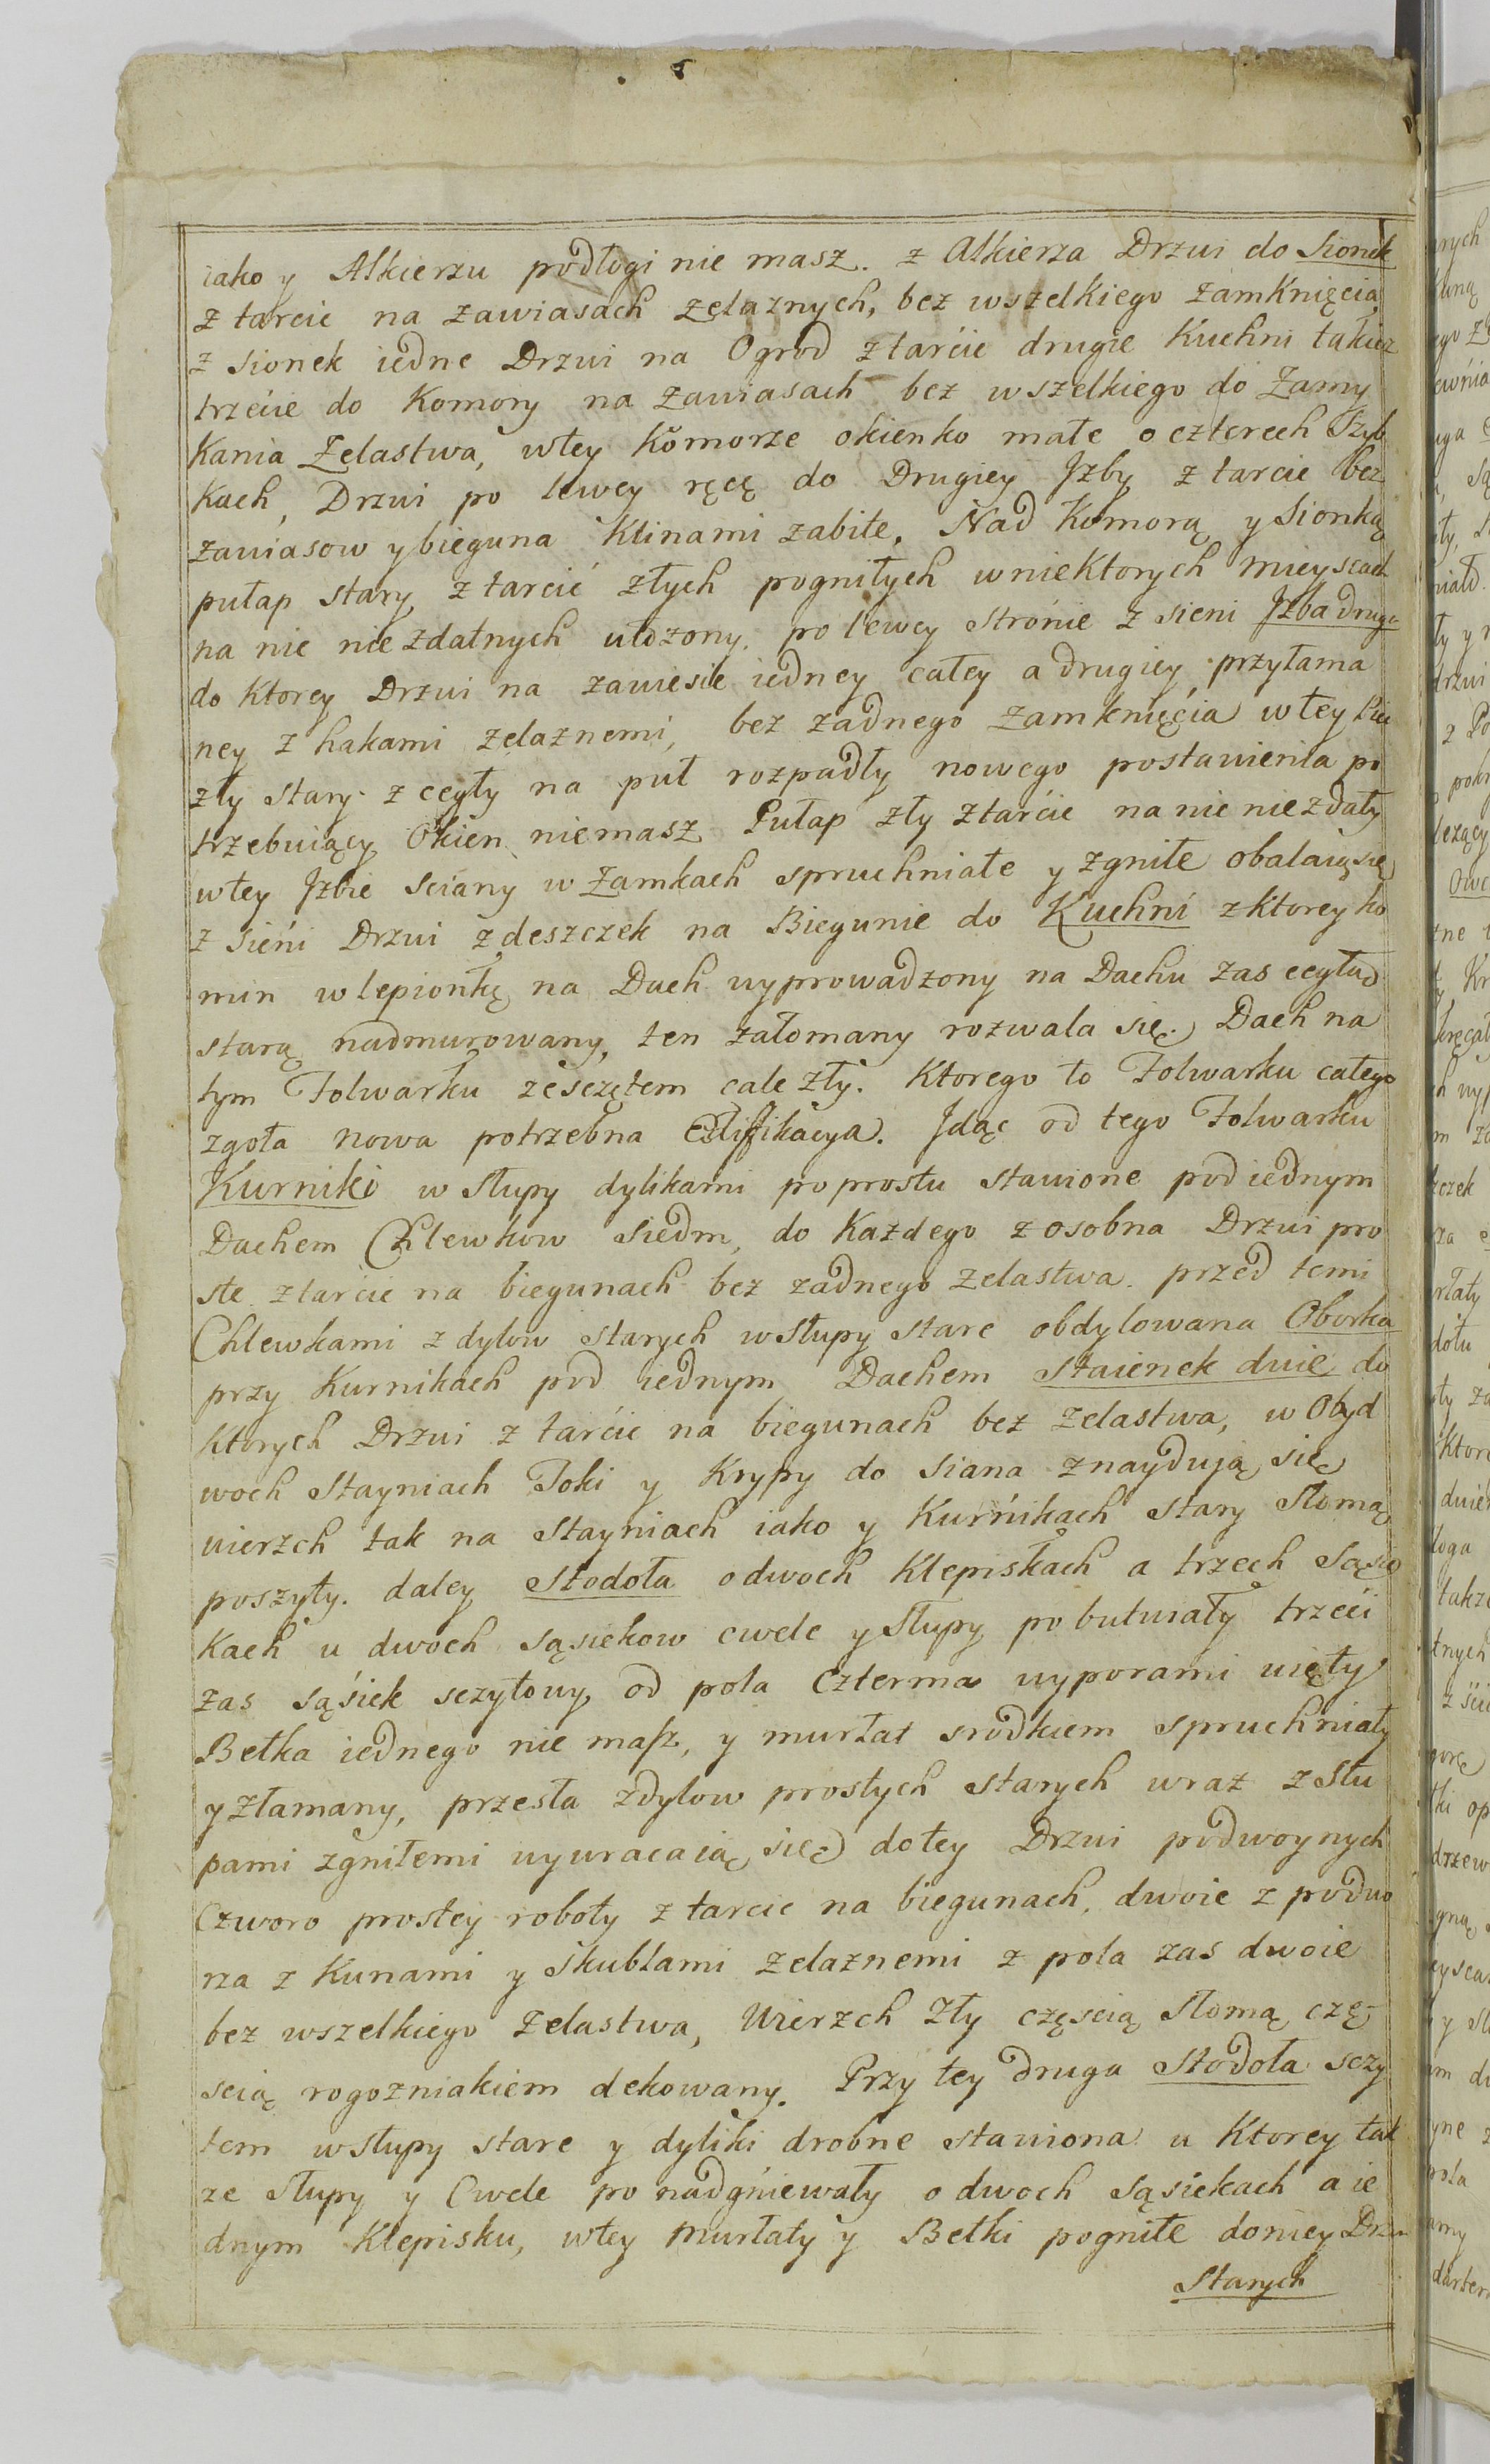 iako y Alkierzu podłogi nie masz. z Alkierza Drzwi do Sionek
z tarcic na zawiasach żelaznych, bez wszelkiego zamknięcia,
z sionek iedne Drzwi na Ogrod z tarcic drugie Kuchni takież
trzecie do Komory na zawiasach bez wszelkiego do Zamy
kania Żelastwa, w tey Komorze okienko małe o czterech Szyb
kach, Drzwi po lewey ręcę do Drugiey Jzby z tarcic bez
zawiasow y bieguna Klinami zabite, Nad Komorą y Sionką
pułap stary z tarcić złych pogniłych w niektorych mieyscach
na nie nie zdatnych ułożony. po lewey stronie z sieni Jzba druga
do Ktorey Drzwi na zawiesie iedney całey a drugiey przyłama
ney z hakami żelaznemi, bez zadnego zamknięcia w tey Piec
zły stary z cegły na puł rozpadły nowego postawienia po
trzebuiący Okien niemasz Pułap zły z tarćic na nic niezdały
w tey Jzbie sciany w Zamkach spruchniałe y zgniłe obalaią się
z sieni Drzwi z deszczek na Biegunie do Kuchni z ktorey ko
min w lepionkę na Dach wyprowadzony na Dachu zas cegłą
starą nadmurowany, ten załomany rozwala się. Dach na
tym Folwarku ze sczętem cale zły. Ktorego to Folwarku całego
zgoła nowa potrzebna Edifikacya. Jdąc od tego Folwarku
Kurniki w słupy dylikami poprostu stawione pod iednym
Dachem Chlewkow siedm, do Kazdego z osobna Drzwi pro
ste z tarcic na biegunach bez zadnego zelastwa. przed temi
Chlewkami z dylow starych w słupy stare obdylowana Oborka
przy Kurnikach pod iednym Dachem staienek dwie do
ktorych Drzwi z tarćic na biegunach bez zelastwa, w Obyd
woch Stayniach Toki y Krypy do siana znayduią się
wierzch tak na Stayniach iako y Kurnikach stary słomą
poszyty. daley stodoła o dwoch Klepiskach a trzech Sąsie
kach u dwoch sąsiekow cwele y słupy po butwiały trzeci
zas sąsiek sczytowy od pola Czterma wyporami uięty
Belka iednego nie masz, y murłat srodkiem spruchniały
y złamany, przesła z dylow prostych starych wraz z słu
pami zgniłemi wywracaią się do tey Drzwi podwoynych
Czworo prostey roboty z tarcic na biegunach, dwoie z podwo
rza z Kunami y skublami zelaznemi z pola zas dwoie
bez wszelkiego zelastwa, Wierzch Zły częscią słomą czę-
scią rogozniakiem dekowany. Przy tey druga Stodoła sczy
tem w słupy stare y dyliki drobne stawiona u Ktorey tak
ze słupy y Cwele po nadgniewały o dwoch sąsiekach a ie
dnym Klepisku, w tey murłaty y Belki pogniłe do niey Drzwi
Starych